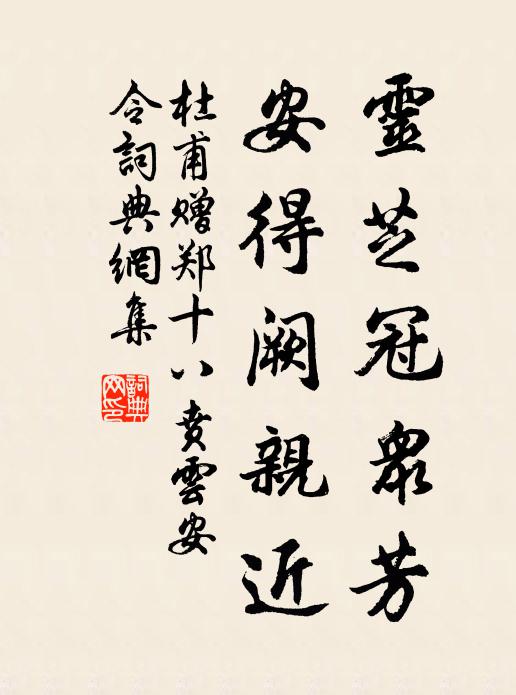 靈芝冠衆芳
安得闕親近
杜甫贈郑十八賁雲安
令詞典網集
詞典网印